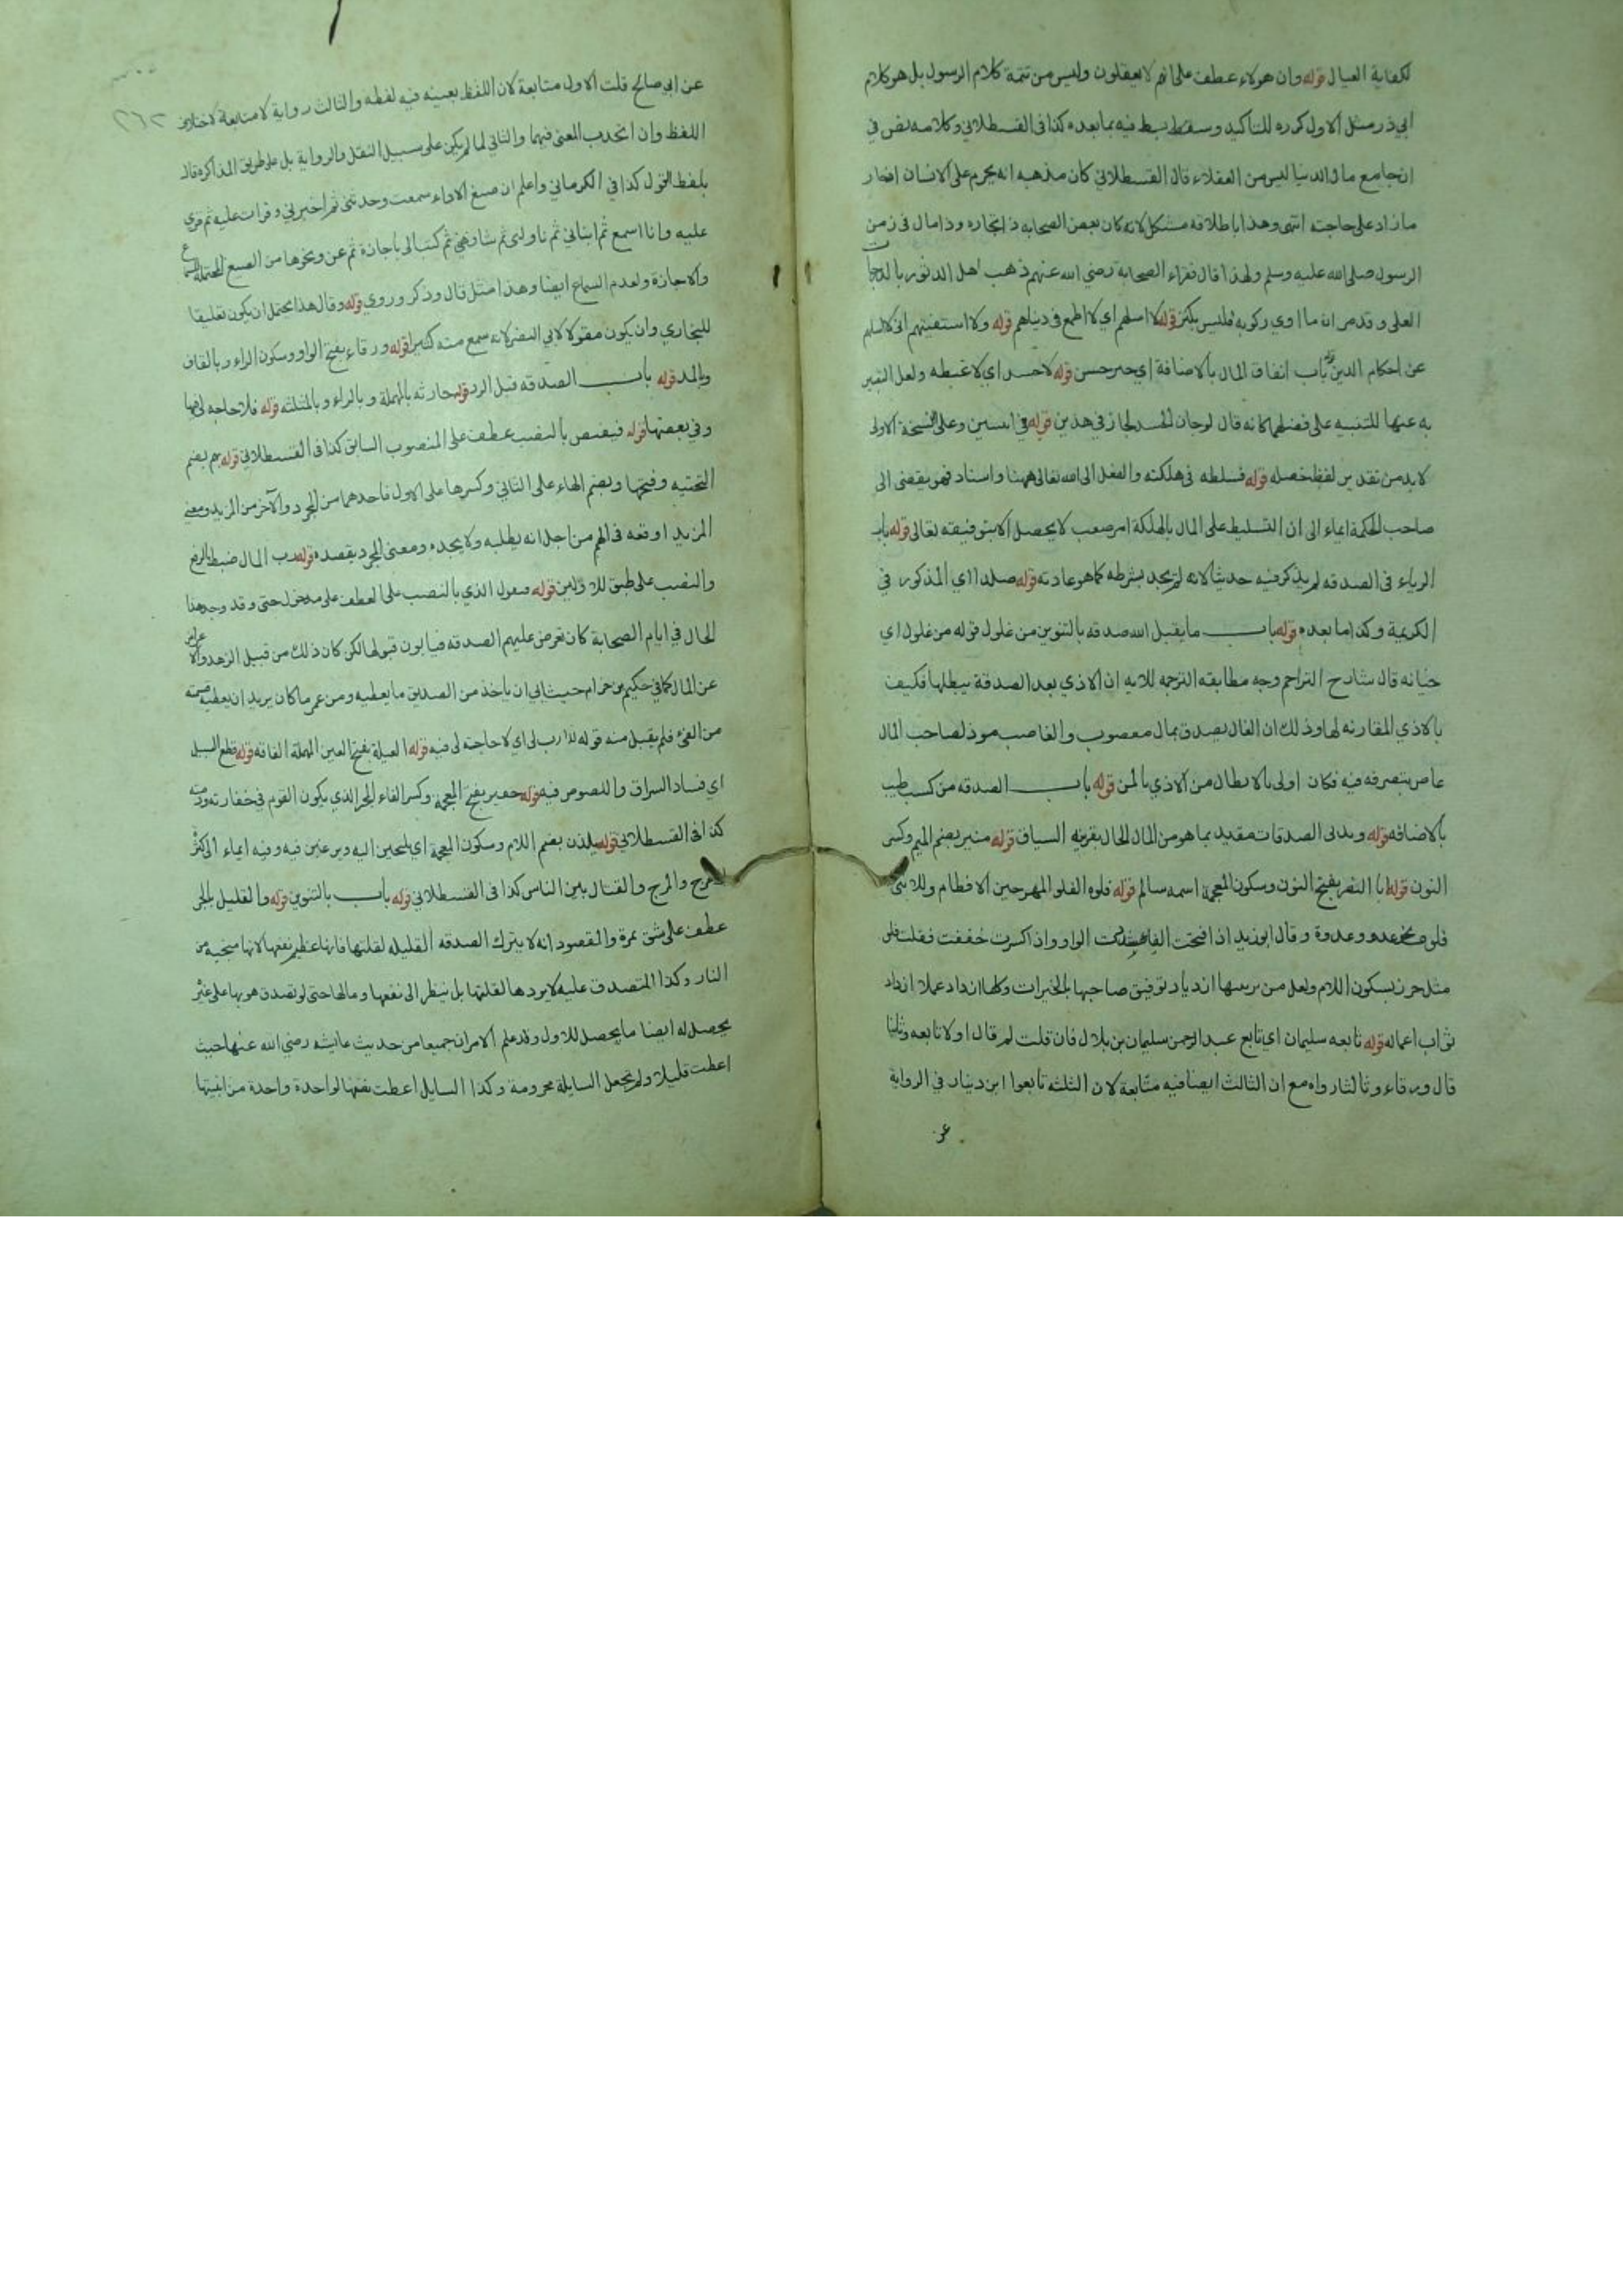 لكفاية العيال قوله وان هولاء عطف على انهم لا يعقلون وليس من تتمة كلام الرسول بل هو كلام
ابي ذر مثل الاول كرره للتاكيد وسقط بط فيه بما بعده كذا في القسطلاني وكلامه نص في
ان جامع مال الدنيا ليس من العقلاء قال القسطلاني كان مذهبه انه يحرم على الانسان ادخار
ما زاد على حاجته انتهى وهذا باطلاقه مشكل لانه كان بعض الصحابه ذا تجاره وذا مال في زمن
الرسول صلى الله عليه وسلم ولهذا قال فقراء الصحابة رضي الله عنهم ذهب اهل الدثور بالدرجات
العلى وقد مر ان ما ادي زكوته فليس بكنز قوله لا اسلهم اي لا اطمع في دنياهم قوله ولا استفتيهم اي لا اسلهم
عن احكام الدين قوله باب انفاق المال بالاضافة اي خبر حسن قوله لا حسد اي لا غبطه ولعل التعبير
به عنها للتنبيه على فضلهما كانه قال لو جاز الحسد لجاز في هذين قوله في اثنين وعلى النسخة الاولى
لا بد من تقدير لفظ خصله قوله فسلطه في هلكته والفعل الى الله تعالى ههنا واسناد فهو يقضي الى
صاحب الحكمة ايماء الى ان التسليط على المال بالهلكة امر صعب لا يحصل الا بتوفيقه تعالى قوله باب
الرياء في الصدقه لم يذكر فيه حديثا لانه لم يجد بشرطه كما هو عادته قوله صلدا اي المذكور في
الكريمة وكذا ما بعده قوله باب ما يقبل الله صدقه بالتنوين من غلول قوله من غلول اي
خيانه قال شارح التراجم وجه مطابقه الترجمه للايه ان الاذي بعد الصدقة يبطلها فكيف
بالاذي المقارنه لها وذلك ان الغال يصدق بمال مغصوب والغاصب موذ لصاحب المال
عاص بتصرفه فيه فكان اولى بالابطال من الاذي بالمن قوله باب الصدقه من كسب طيب
بالاضافه قوله ويربى الصدقات مقيد بما هو من المال الحلال بقرينه السياق قوله منير بضم الميم وكسر
النون قوله ابا النضر بفتح النون وسكون المعجمة اسمه سالم قوله فلوه الفلو المهر حين الافطام وللانثى
فلوه نحو عدو وعدوة وقال ابو زيد اذا فتحت الفاء شددت الواو واذا كسرت خففت فقلت فلو
مثل جرو بسكون اللام ولعل من تربيتها ازدياد توفيق صاحبها بالخيرات وكلما ازداد عملا ازداد
ثواب اعماله قوله تابعه سليمان اي تابع عبد الرحمن سليمان بن بلال فان قلت لم قال اولا تابعه وثانيا
قال ورقاء وثالثا رواه مع ان الثالث ايضا فيه متابعة لان الثلثه تابعوا ابن دينار في الرواية
عن
٢٦٢
عن ابي صالح قلت الاول متابعة لان اللفظ بعينه فيه لفظه والثالث رواية لا متابعة لاختلاف
اللفظ وان اتحد المعنى فيهما والثاني لما لم يكن على سبيل النقل والرواية بل على طريق المذاكره قال
بلفظ القول كذا في الكرماني واعلم ان صيغ الاداء سمعت وحدثني ثم اخبرني وقرات عليه ثم قرئ
عليه وانا اسمع ثم انباني ثم ناولني ثم شافهني ثم كتب الي باجازة ثم عن ونحوها من الصيغ المحتملة للسماع
والاجازة ولعدم السماع ايضا وهذا مثل قال وذكر وروي قوله وقال هذا يحتمل ان يكون تعليقا
للبخاري وان يكون مقولا لابي النضر لانه سمع منه كثيرا قوله ورقاء بفتح الواو وسكون الراء وبالقاف
وبالمد قوله باب الصدقه قبل الرد قوله حارثه بالمهملة وبالراء وبالمثلثه قوله فلا حاجه لي فيها
وفي بعضها قوله فيفيض بالنصب عطف على المنصوب السابق كذا في القسطلاني قوله يهم بضم
التحتيه وفتحها وبضم الهاء على الثاني وكسرها على الاول فاحدهما من المجرد والآخر من المزيد ومعنى
المزيد اوقعه في الهم من اجل انه يطلبه ولا يجده ومعنى المجرد يقصده قوله رب المال ضبط بالرفع
والنصب على طبق للاولين قوله فيقول الذي بالنصب على العطف على مدخول حتى وقد وجد هذا
الحال في ايام الصحابة كان تعرض عليهم الصدقه فيابون قبولها لكن كان ذلك من قبيل الزهد والاعراض
عن المال كما في حكيم بن حزام حيث ابي ان ياخذ من الصديق ما يعطيه ومن عمر ما كان يريد ان يعطيه قسمته
من الفيء فلم يقبل منه قوله لا ارب لي اي لا حاجة لي فيه قوله العيلة بفتح العين المهملة الفاقه قوله قطع السبيل
اي فساد السراق واللصوص فيه قوله خفير بفتح المعجمة وكسر الفاء المجير الذي يكون القوم في خفارته وذمته
كذا في القسطلاني قوله يلذن بضم اللام وسكون المعجمة اي يلتجين اليه ويرغبن فيه وفيه ايماء الى كثرة
الهرج والمرج والقتال بين الناس كذا في القسطلاني قوله باب بالتنوين قوله والقليل بالجر
عطف على شق تمرة والمقصود انه لا يترك الصدقه القليله لقلتها فانها عظيم نفعها لانها منجيه من
النار وكذا المتصدق عليه لا يردها لقلتها بل ينظر الى نفعها ومالها حتى لو تصدق هو بها على غيره
يحصل له ايضا ما يحصل للاول وقد علم الامران جميعا من حديث عائشه رضي الله عنها حيث
اعطت قليلا ولم تجعل السايلة محرومة وكذا السايل اعطت بعضها لواحدة واحدة من ابنتيها